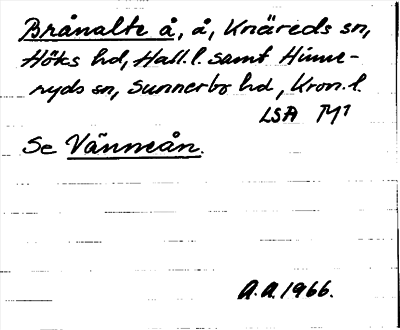 Brånalte å, å, Knäreds sn,
Höks hd, Hall.l. samt Hinne-
ryds sn, Sunnerbo hd, Kron.l.
LSA M1
Se Vänneån.
A.A. 1966.